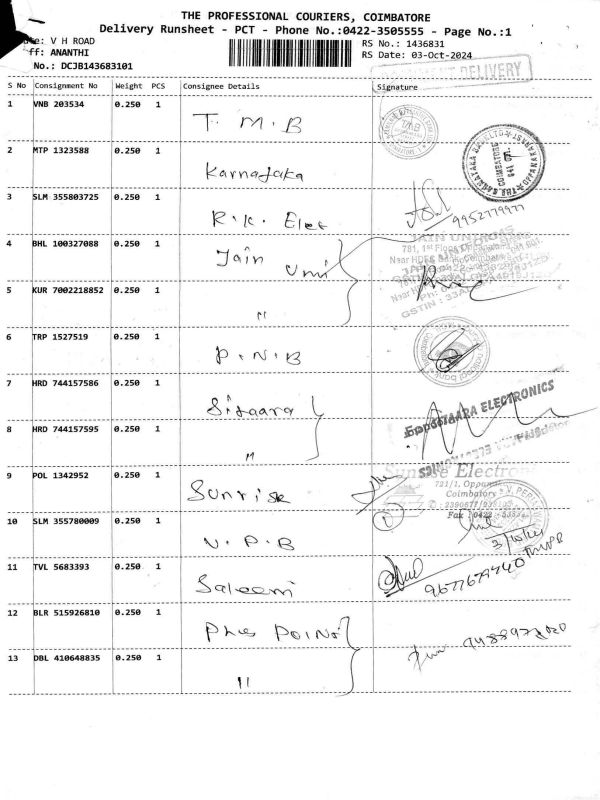 THE PROFESSIONAL COURIERS, COIMBATORE
Delivery Runsheet - PCT - Phone No.:0422-3505555 - Page No.:1
V H ROAD RS No : 1436831
ff: ANANTHI RS Date: 03-Oct-2024
No.: DCJB143683101
DELIVERY
S No Consignment No Weight PCS Consignee Details Signature
1 VNB 203534 0.250 1 T. M. B
2 MTP 1323588 0.250 1 Karnataka
COIMBATORE
3 SLM 355803725 0.250 1 R. K. Elec
9952779977
4 BHL 100327088 0.250 1 Jain Uni
JAIN UNIFORMS
5 KUR 7002218852 0.250 1 "
6 TRP 1527519 0.250 1 P. N. B
7 HRD 744157586 0.250 1 Sitaara
ELECTRONICS
8 HRD 744157595 0.250 1 "
9 POL 1342952 0.250 1 Sunrise
Sunrise Electron
721/1, Oppana
Coimbatore
10 SLM 355780009 0.250 1 V. P. B
11 TVL 5683393 0.250 1 Saleem
9677677240
12 BLR 515926810 0.250 1 Plus Point
13 DBL 410648835 0.250 1 "